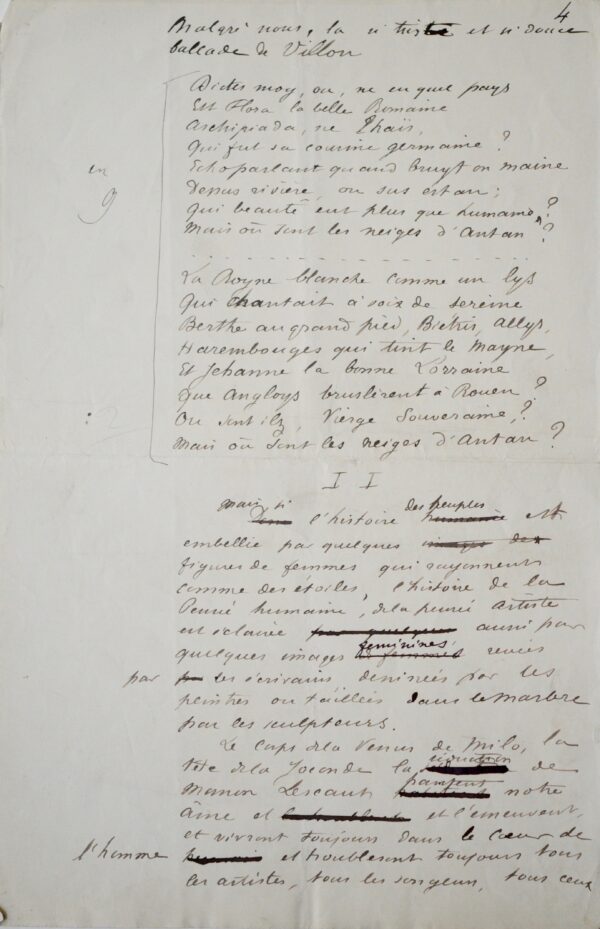 4
Malgré nous, la si triste et si douce
ballade de Villon
Dictes moy, ou, ne en quel pays
Est Flora la belle Romaine
Archipiada, ne Thaïs,
Qui fut sa cousine germaine ?
Echo parlant quand bruyt on maine
Dessus rivière, ou sus estan ;
Qui beauté eut plus que humaine ?
Mais où sont les neiges d'Antan ?
en
9
La Royne blanche comme un lys
Qui chantait à voix de sereine
Berthe au grand pied, Biétris, Allys,
Harembouges qui tint le Mayne,
Et Jehanne la bonne Lorraine
Que Angloys bruslèrent à Rouen ?
Ou sont ilz, Vierge Souveraine, ?
Mais où sont les neiges d'Antan ?
: 2
II
mais si des peuples
l'histoire humaine est
embellie par quelques images de
figures de femmes qui rayonnent
comme des étoiles, l'histoire de la
Pensée humaine, de la pensée artiste
est éclairée par quelques aussi par
feminines,
quelques images de femmes revées
par par les écrivains dessinées par les
peintres ou taillées dans le marbre
par les sculpteurs.
Le Corps de la Venus de Milo, la
tête de la Joconde la de
Manon Lescaut notre
âme et et l'émeuvent,
et vivront toujours dans le cœur de
l'homme humain et troubleront toujours tous
les artistes, tous les songeurs, tous ceux